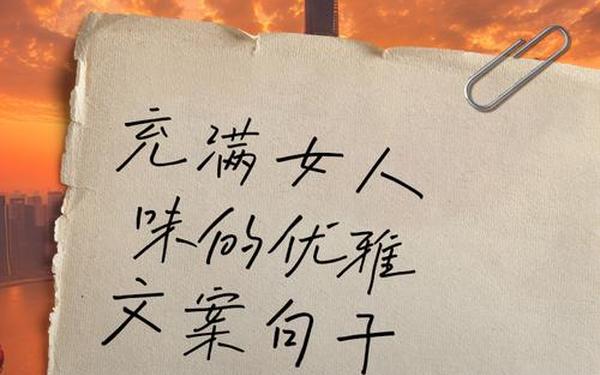 充满女人
味的优雅
文案句子